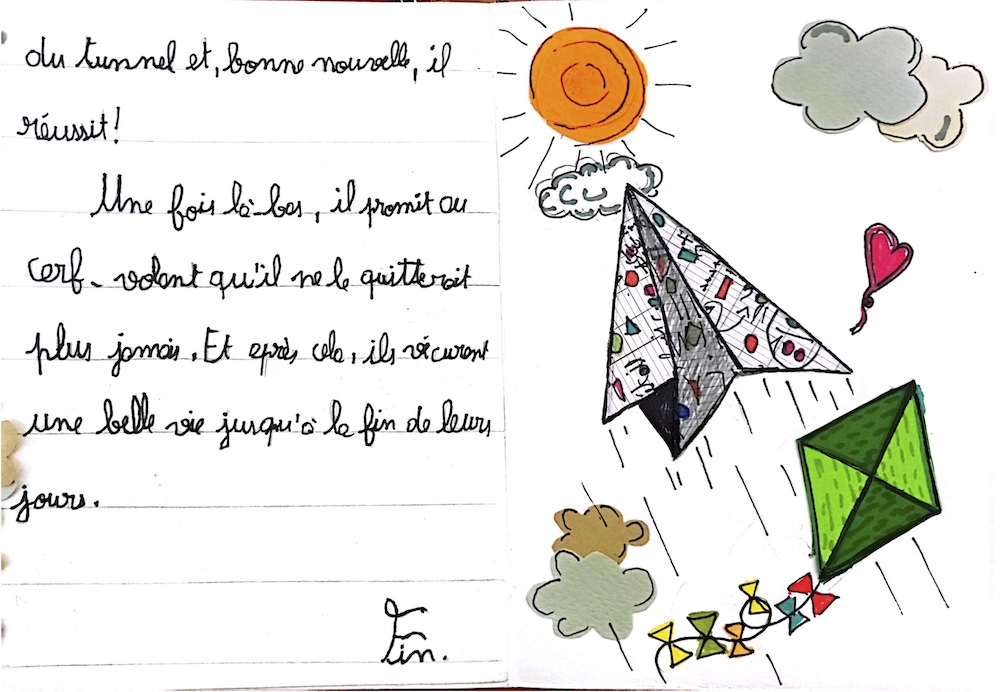 du tunnel et, bonne nouvelle, il
réussit!
Une fois là-bas, il promit au
cerf-volant qu'il ne le quitterait
plus jamais. Et après cela, ils vécurent
une belle vie jusqu'à la fin de leurs
jours.
Fin.